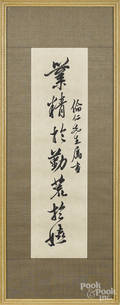 倫仁先生属書
業精於勤荒於嬉
Pook & Pook